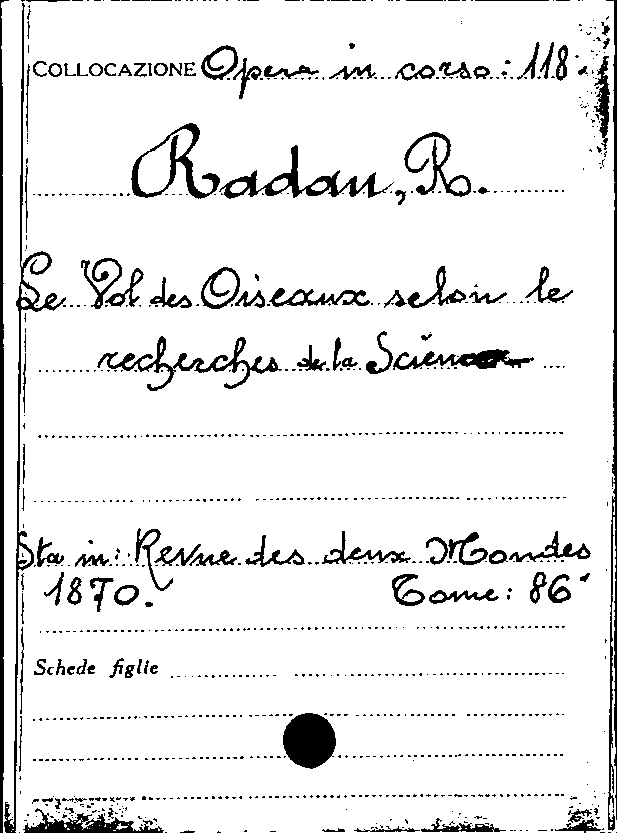 COLLOCAZIONE Opere in corso: 118.
Radau, R.
Le Vol des Oiseaux selon le
recherches de la Science
Sta in: Revue des deux Mondes
1870. Tome: 86°
Schede figlie